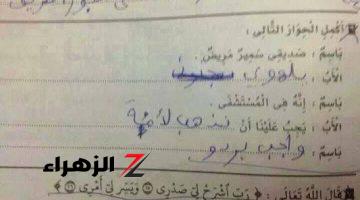 أَكْمِلِ الْحِوَارَ التَّالِى :
بَاسِمٌ : صَدِيقِى سَمِيرٌ مَرِيضٌ.
الْأَبُ : يلهوى
بَاسِمٌ : إِنَّهُ فِى الْمُسْتَشْفَى.
الْأَبُ : يَجِبُ عَلَيْنَا أَنْ نذهب لأمة
بَاسِمٌ : واجب بردو
الزهراء
قَالَ اللَّهُ تَعَالَى : ﴿ رَبِّ اشْرَحْ لِى صَدْرِى ۝ وَيَسِّرْ لِى أَمْرِى ۝ ﴾